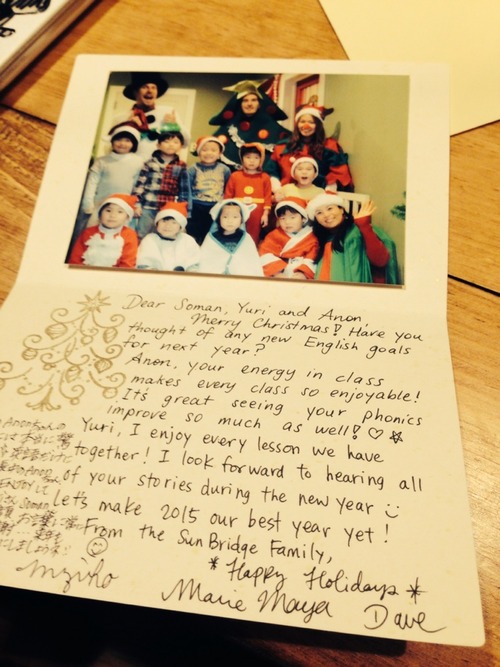 Dear Soman, Yuri and Anon,
Merry Christmas! Have you
thought of any new English goals
for next year?
Anon, your energy in class
makes every class so enjoyable!
It's great seeing your phonics
improve so much as well! ♡ ☆
Yuri, I enjoy every lesson we have
together! I look forward to hearing all
of your stories during the new year ☺
Let's make 2015 our best year yet!
From the SunBridge Family,
* Happy Holidays *
Marie Maya Dave